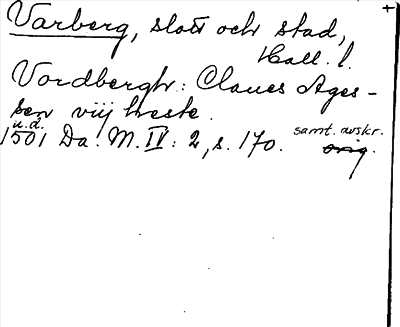 +
Varberg, slott och stad,
Hall. l.
Vordbergh: Claues Ages-
sen viij heste.
u.d.
1501 Da. M. IV: 2, s. 170. samt. avskr.
orig.